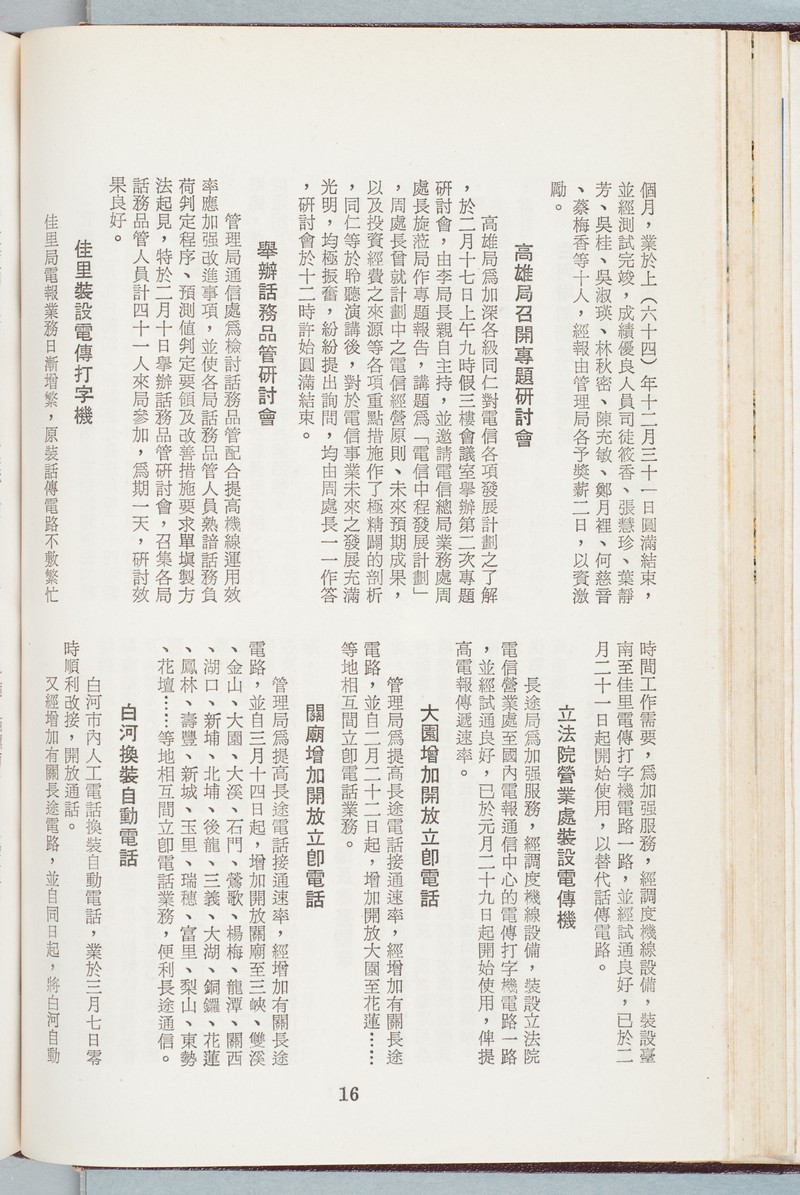 個月，業於上（六十四）年十二月三十一日圓滿結束，
並經測試完竣，成績優良人員司徒筱香、張慧珍、葉靜
芳、吳桂、吳淑瑛、林秋密、陳充敏、鄭月裡、何慈音
、蔡梅香等十人，經報由管理局各予獎薪二日，以資激
勵。
高雄局召開專題研討會
高雄局爲加深各級同仁對電信各項發展計劃之了解
，於二月十七日上午九時假三樓會議室舉辦第二次專題
研討會，由李局長親自主持，並邀請電信總局業務處周
處長旋蒞局作專題報告，講題爲「電信中程發展計劃」
，周處長曾就計劃中之電信經營原則、未來預期成果，
以及投資經費之來源等各項重點措施作了極精闢的剖析
，同仁等於聆聽演講後，對於電信事業未來之發展充滿
光明，均極振奮，紛紛提出詢問，均由周處長一一作答
，研討會於十二時許始圓滿結束。
舉辦話務品管研討會
管理局通信處爲檢討話務品管配合提高機線運用效
率應加强改進事項，並使各局話務品管人員熟諳話務負
荷判定程序、預測値判定要領及改善措施要求單塡製方
法起見，特於二月十日舉辦話務品管研討會，召集各局
話務品管人員計四十一人來局參加，爲期一天，研討效
果良好。
佳里裝設電傳打字機
佳里局電報業務日漸增繁，原裝話傳電路不敷繁忙
時間工作需要，爲加强服務，經調度機線設備，裝設臺
南至佳里電傳打字機電路一路，並經試通良好，已於二
月二十一日起開始使用，以替代話傳電路。
立法院營業處裝設電傳機
長途局爲加强服務，經調度機線設備，裝設立法院
電信營業處至國內電報通信中心的電傳打字機電路一路
，並經試通良好，已於元月二十九日起開始使用，俾提
高電報傳遞速率。
大園增加開放立卽電話
管理局爲提高長途電話接通速率，經增加有關長途
電路，並自二月二十二日起，增加開放大園至花蓮……
等地相互間立卽電話業務。
關廟增加開放立卽電話
管理局爲提高長途電話接通速率，經增加有關長途
電路，並自三月十四日起，增加開放關廟至三峽、雙溪
、金山、大園、大溪、石門、鶯歌、楊梅、龍潭、關西
、湖口、新埔、北埔、後龍、三義、大湖、銅鑼、花蓮
、鳳林、壽豐、新城、玉里、瑞穗、富里、梨山、東勢
、花壇……等地相互間立卽電話業務，便利長途通信。
白河換裝自動電話
白河市內人工電話換裝自動電話，業於三月七日零
時順利改接，開放通話。
又經增加有關長途電路，並自同日起，將白河自動
16